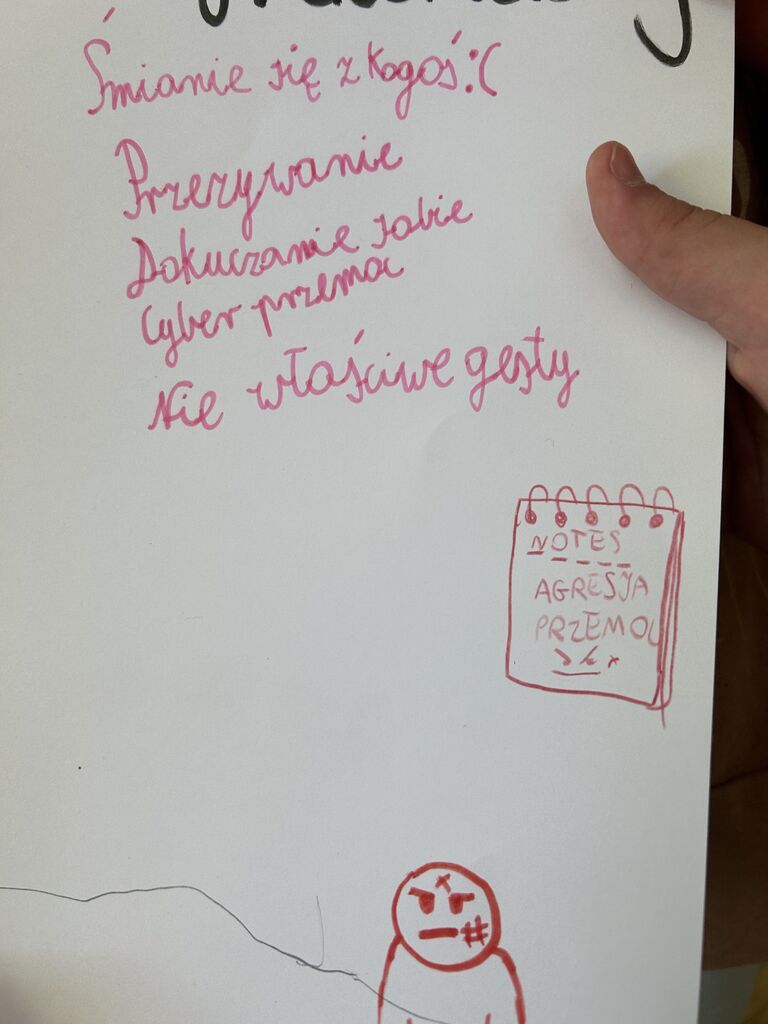 Śmianie się z kogoś:(
Przezywanie
Dokuczanie sobie
Cyber przemoc
Nie właściwe gęsty
NOTES
AGRESJA
PRZEMOC